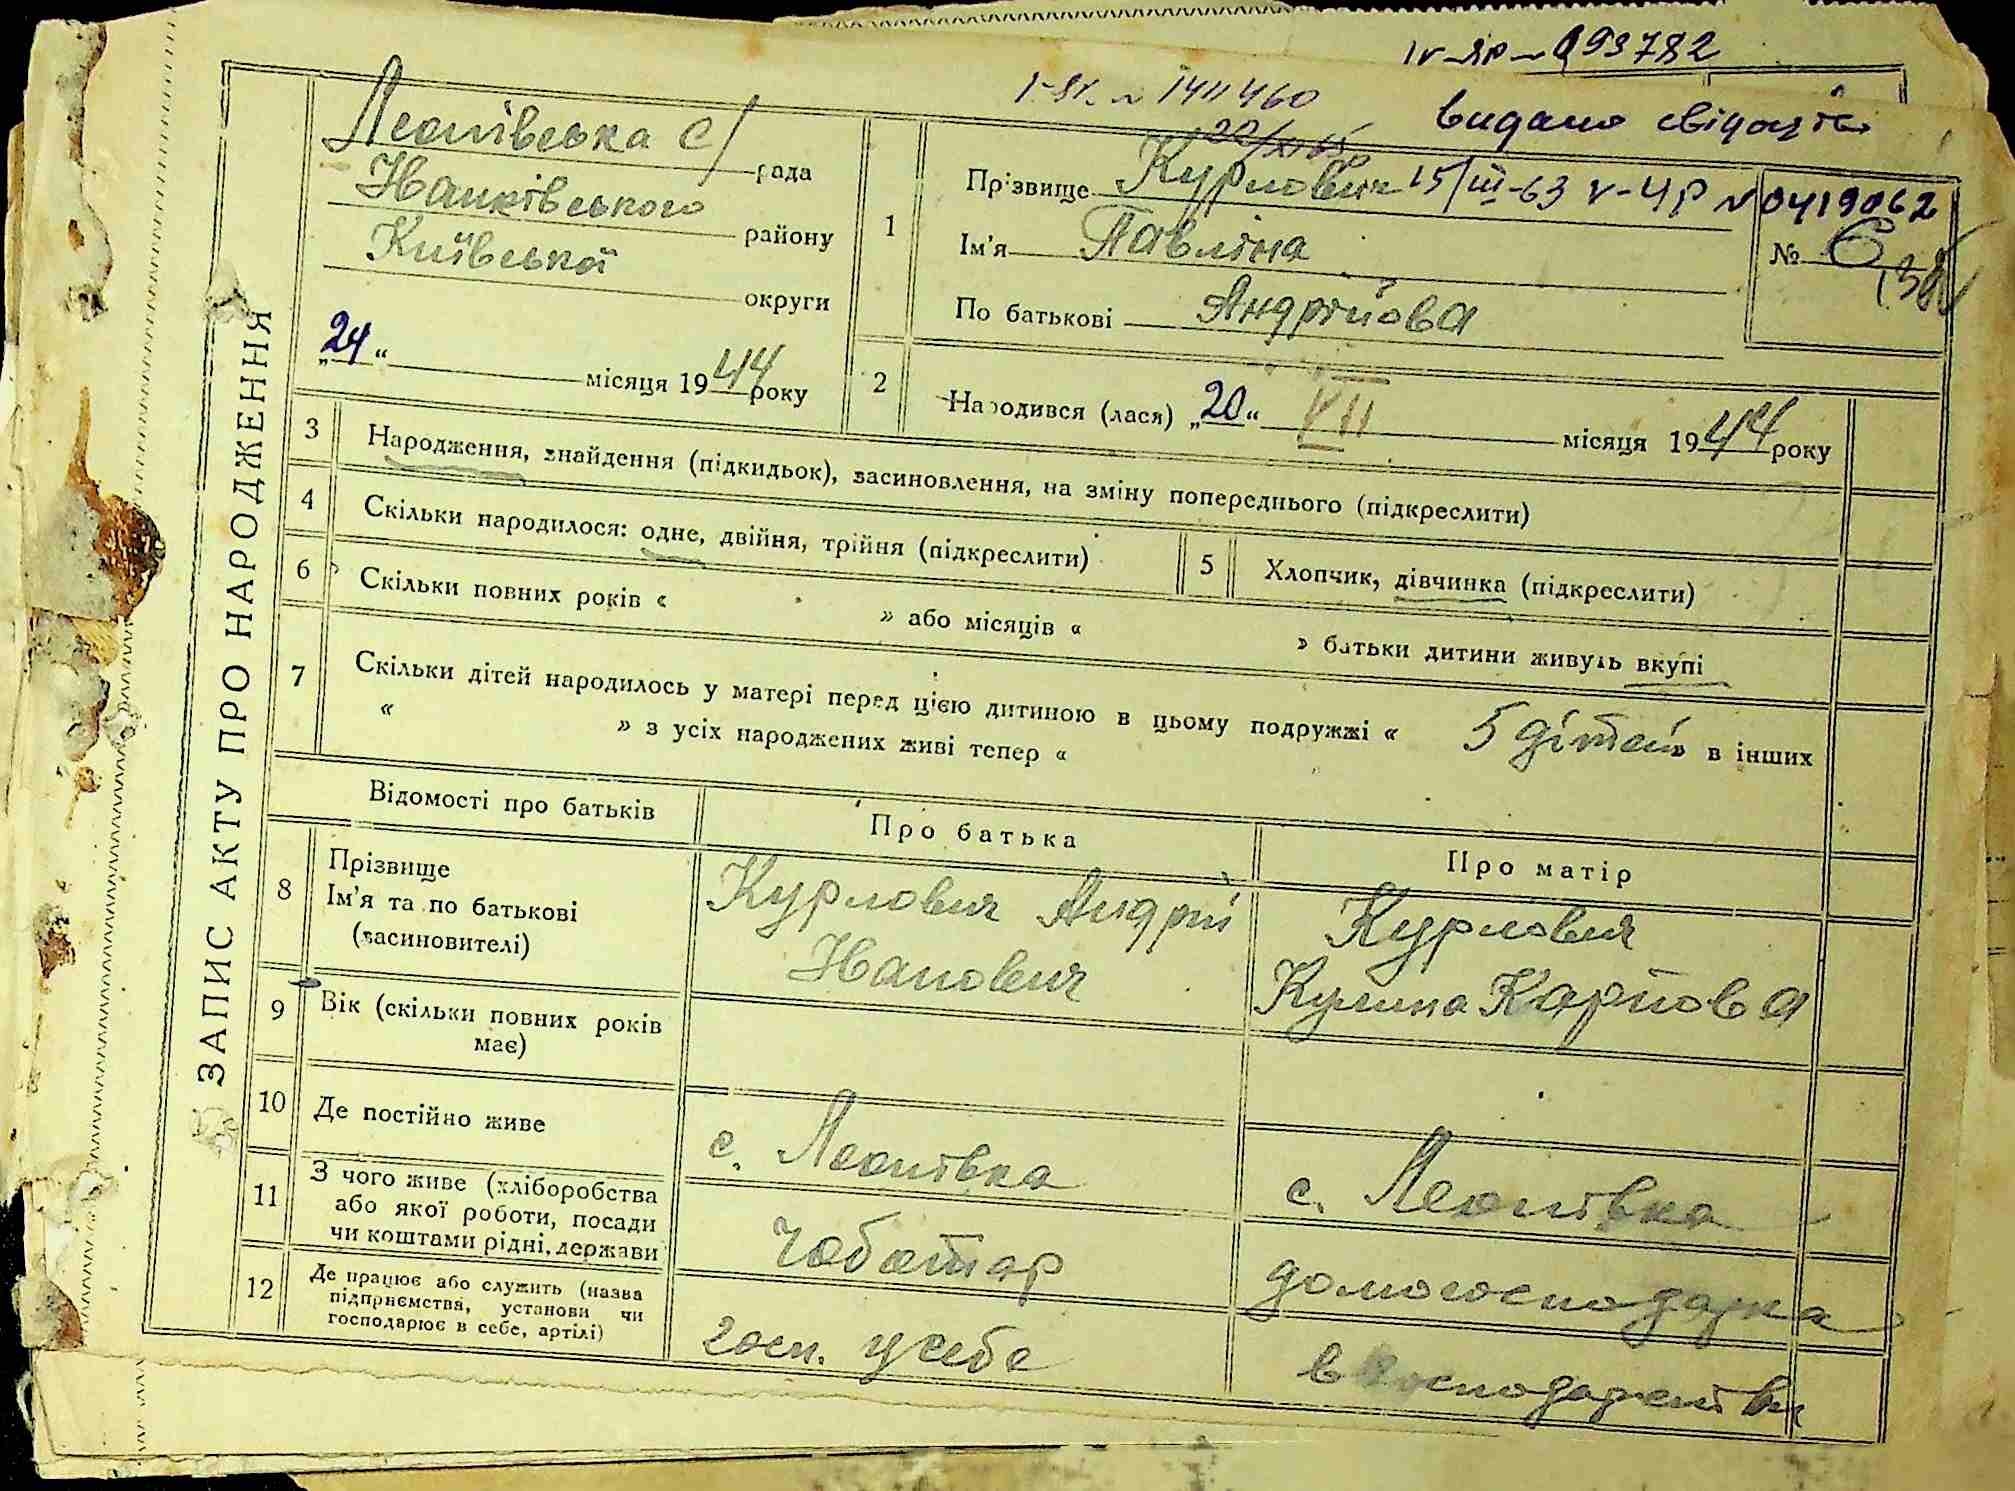 ЗАПИС АКТУ ПРО НАРОДЖЕННЯ
видано свідоцтво
15/III-63 V-ЧР № 0419062
Леонівська с/рада
Іванківського району
Київської округи
„24“ місяця 1944 року
1
Прізвище Курлович
Ім'я Павліна
По батькові Андрійова
№ 6
2
Народився (лася) „20“ VII місяця 1944 року
3 Народження, знайдення (підкидьок), засиновлення, на зміну попереднього (підкреслити)
4 Скільки народилося: одне, двійня, трійня (підкреслити)
5 Хлопчик, дівчинка (підкреслити)
6 Скільки повних років « » або місяців « » батьки дитини живуть вкупі
7 Скільки дітей народилось у матері перед цією дитиною в цьому подружжі « 5 дітей » в інших
« » з усіх народжених живі тепер «
Відомості про батьків
Про батька
Про матір
8
Прізвище
Ім'я та по батькові
(засиновителі)
Курлович Андрій
Іванович
Курлович
Кулина Карпова
9 Вік (скільки повних років
має)
10 Де постійно живе
с. Леонівка
с. Леонівка
11
З чого живе (хліборобства
або якої роботи, посади
чи коштами рідні, держави
чоботар
домогосподарка
12
Де працює або служить (назва
підприємства, установи чи
господарює в себе, артілі)
госп. у себе
в господарстві